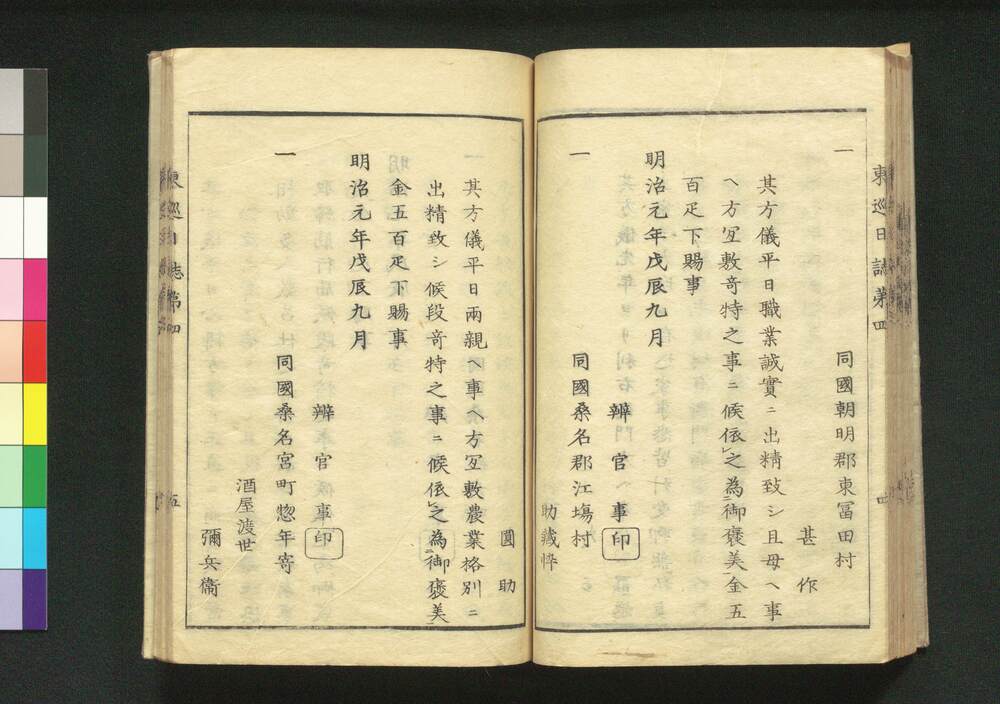 東巡日誌第四
四
一
同國朝明郡東冨田村
甚作
其方儀平日職業誠實ニ出精致シ且母ヘ事
ヘ方冝敷竒特之事ニ候依之為御褒美金五
百疋下賜事
明治元年戊辰九月
辨官事印
一
同國桑名郡江塲村
助藏悴
圓助
其方儀平日兩親ヘ事ヘ方冝敷農業格別ニ
出精致シ候段竒特之事ニ候依之為御褒美
金五百疋下賜事
明治元年戊辰九月
辨官事印
一
同國桑名宮町惣年寄
酒屋渡世
彌兵衞
東巡日誌第四
五